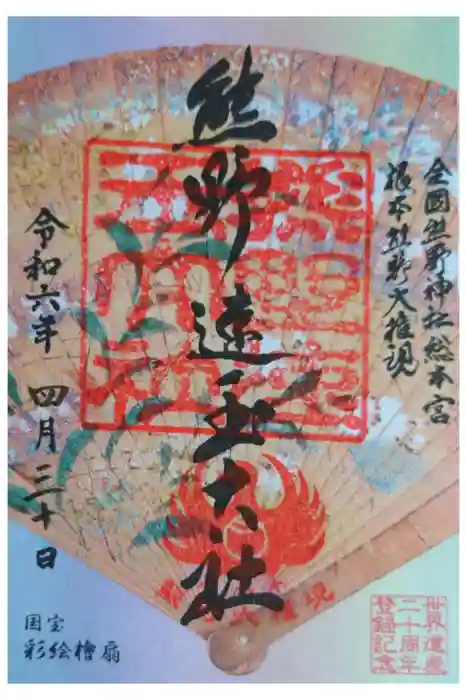 全國熊野神社総本宮
根本熊野大権現
熊野速玉大社
令和六年 四月三十日
国宝
彩絵檜扇
世界遺産
二十周年
登録記念